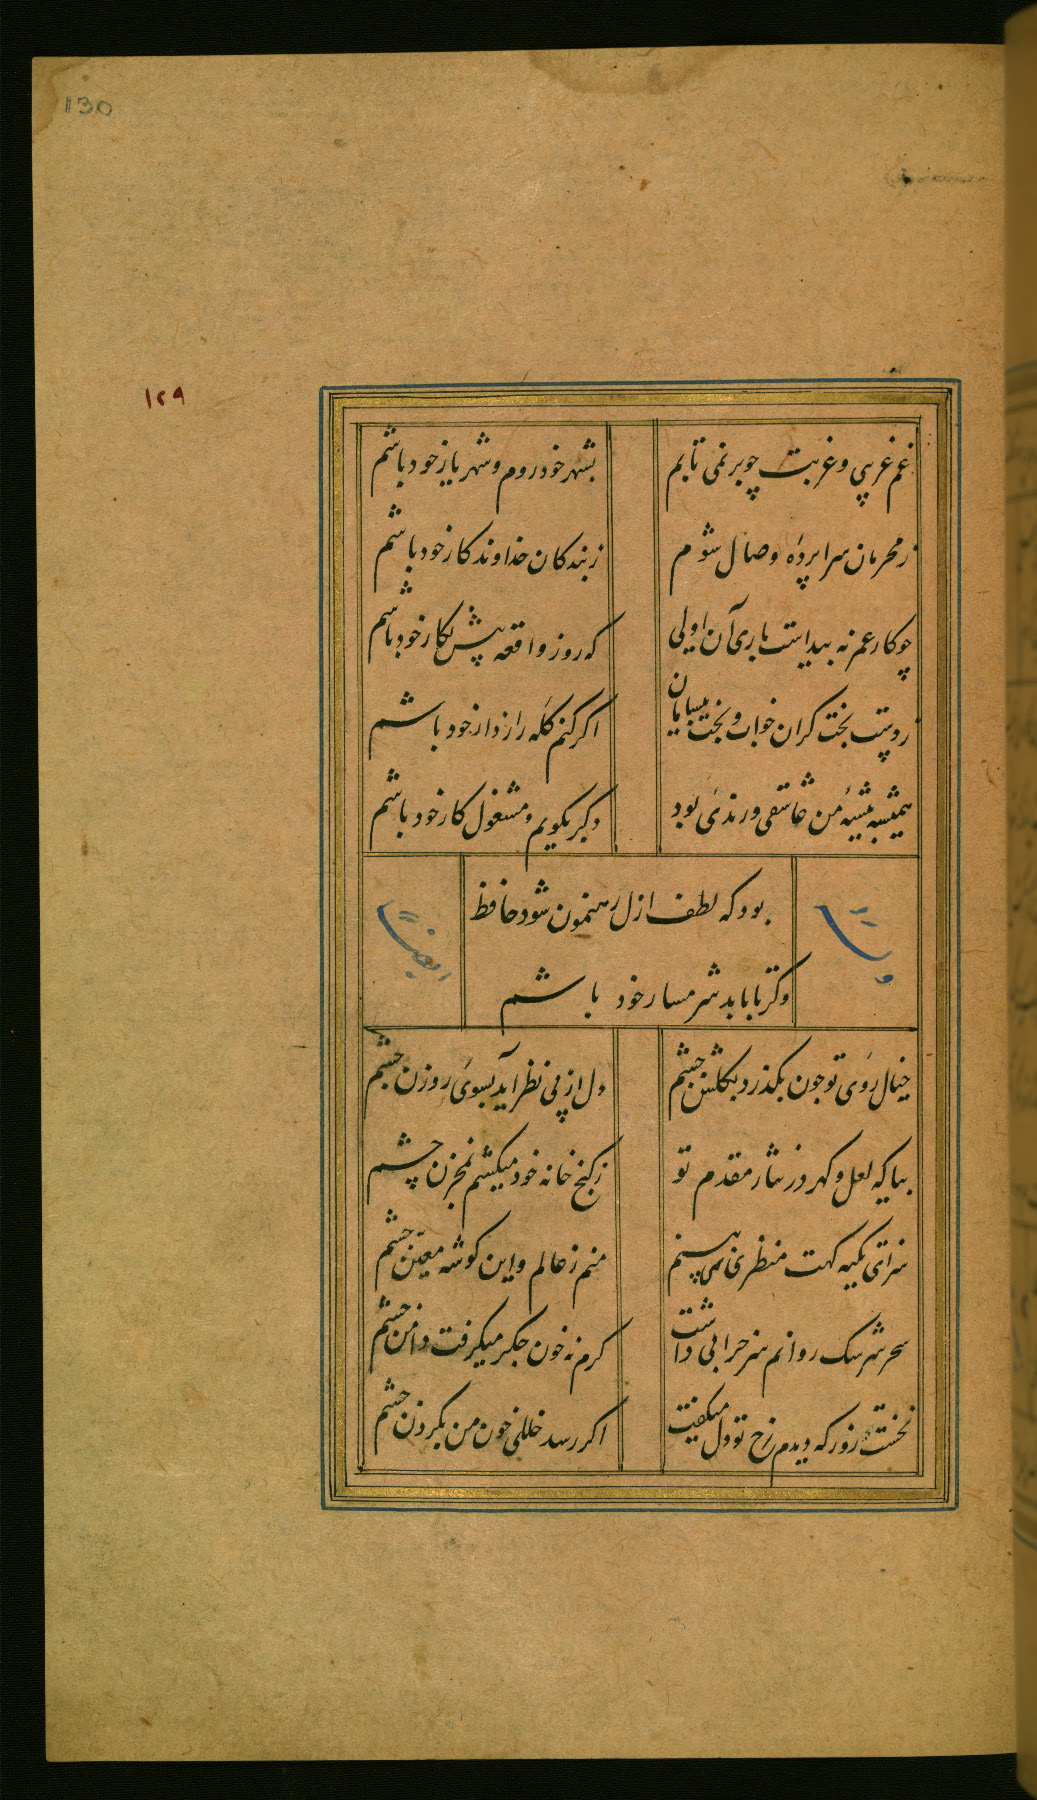 130
۱۲۹
غم غریبی و غربت چو بر نمی تابم
بشهر خود روم و شهریار خود باشم
ز محرمان سراپردهٔ وصال شوم
ز بندکان خداوندکار خود باشم
چو کار عمر نه پیداست باری آن اولی
که روز واقعه پیش نکار خود باشم
ز دست بخت کران خواب و بخت بیسامان
اکر کنم کله راز دار خود باشم
همیشه پیشهٔ من عاشقی و رندی بود
دکر بکویم و مشغول کار خود باشم
بود که لطف ازل رهنمون شود حافظ
وکر نه تا بابد شرمسار خود باشم
خیال روی تو چون بکذرد بکلشن چشم
دل از پی نظر آید بسوی روزن چشم
بیا که لعل و کهر در نثار مقدم تو
ز کنج خانه خود میکشم بمخزن چشم
سزای تکیه کهت منظری نمی بینم
منم ز عالم و این کوشه معیّن چشم
سحر سرشک روانم سر خرابی داشت
کرم نه خون جکر میکرفت دامن چشم
نخست روز که دیدم رخ تو دل میکفت
اکر رسد خللی خون من بکردن چشم